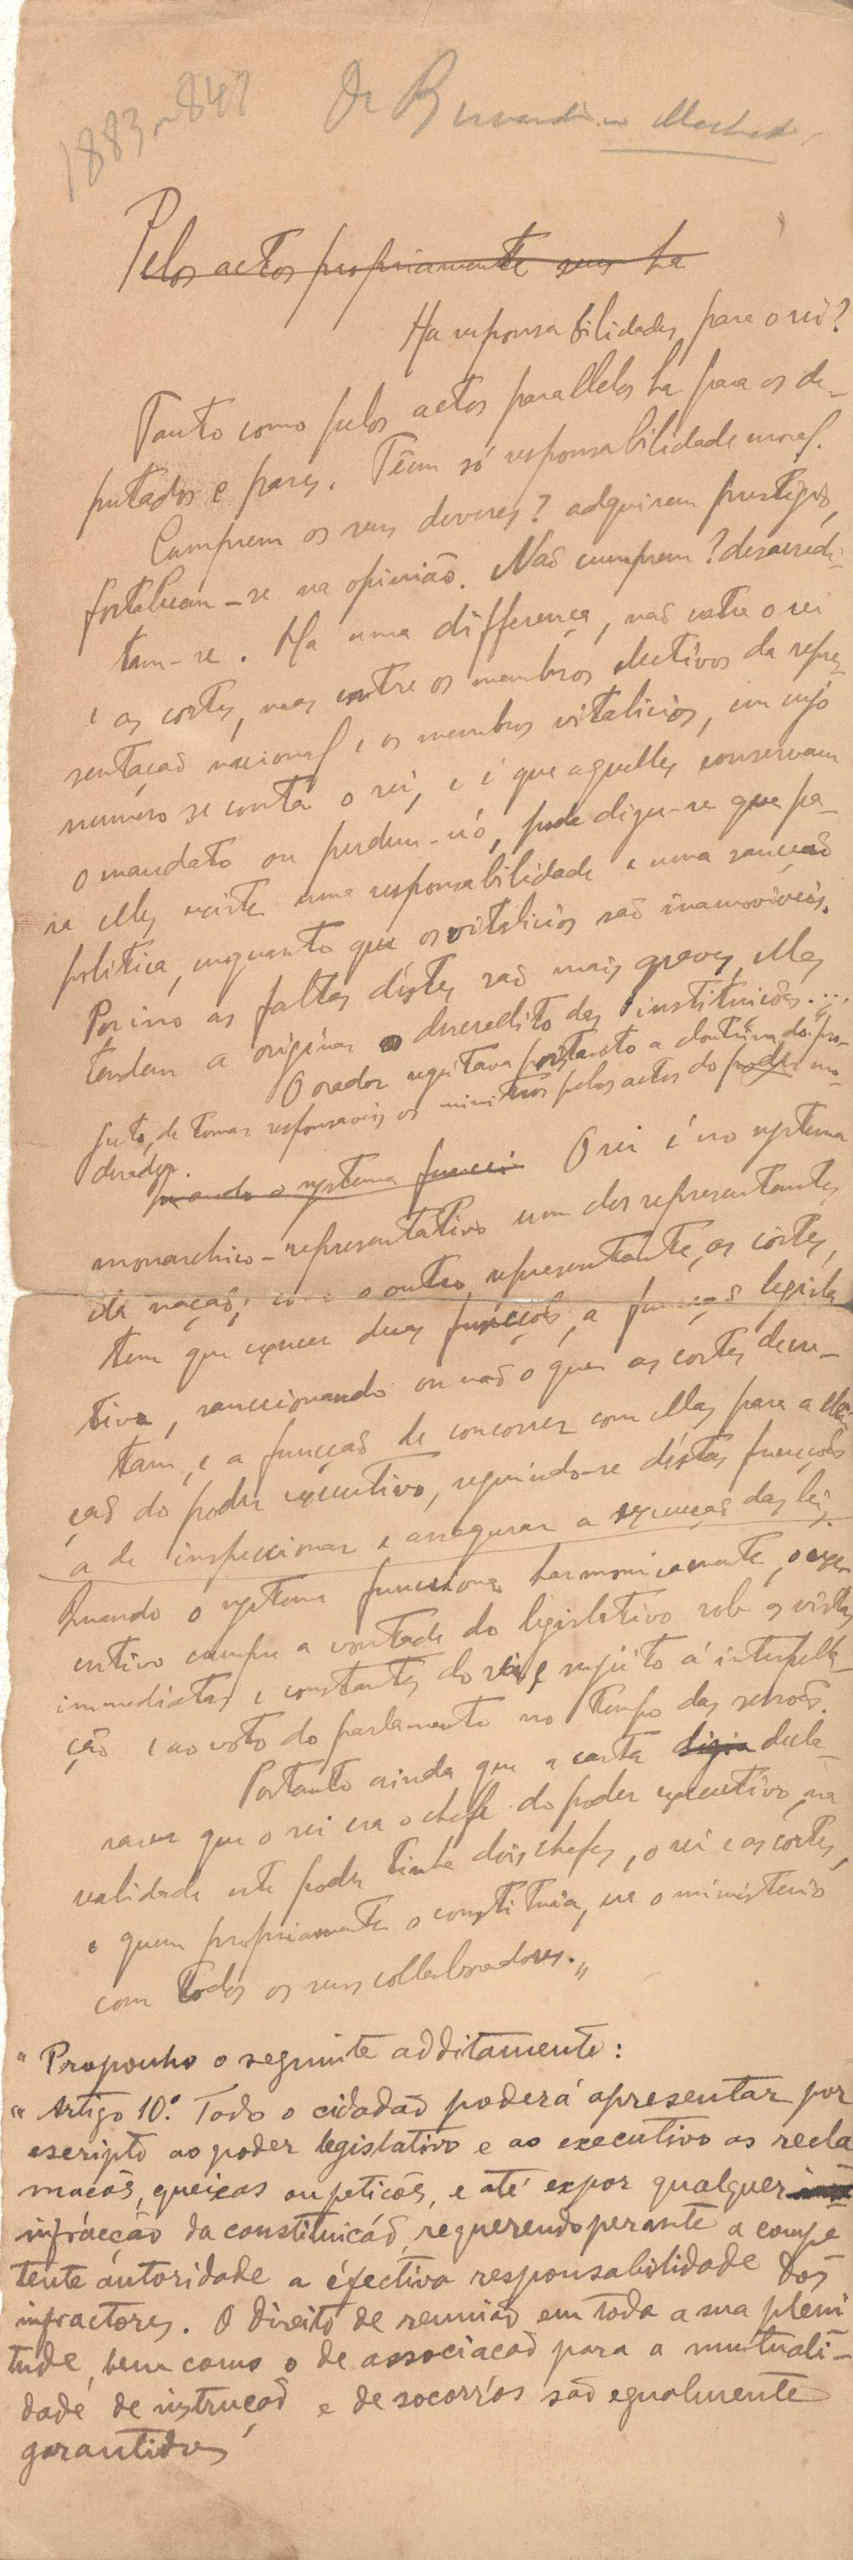 1883 847
Dr Bernardino Machado
Pelos actos propriamente seus ha
Ha responsabilidades para o rei?
Tanto como pelos actos parallelos ha para os de-
putados e pares. Têem só responsabilidade moral.
Cumprem os seus deveres? adquirem prestigio,
fortalecem-se na opinião. Não cumprem? desacredi-
tam-se. Ha uma differença, não entre o rei
e as cortes, mas entre os membros electivos da repre-
sentação nacional e os membros vitalicios, em cujo
numero se conta o rei, e é que aquelles conservam
o mandato ou perdem-n'ó, póde dizer-se que pa-
ra elles existe uma responsabilidade e uma sancção
politica, emquanto que os vitalicios são inamoviveis.
Por isso as faltas déstes são mais graves, ellas
tendem a originar o descredito das instituições...
O orador regeitava portanto a doutrina do pro-
jecto, de tornar responsaveis os ministros pelos actos do poder mo-
derador.
quando o systema funcci O rei é no systema
monarchico-representativo um dos representantes
da nação; como o outro representante, as côrtes,
tem que exercer duas funcções, a funcção legisla-
tiva, sanccionando ou não o que as cortes decre-
tam, e a funcção de concorrer com ellas para a elei-
ção do poder executivo, seguindo-se déstas funcções
a de inspeccionar e assegurar a execução das leis.
Quando o systema funcciona harmonicamente, o exe-
cutivo cumpre a vontade do legislativo sob as vistas
immediatas e constantes do rei e sujeito á interpella-
ção e ao voto do parlamento no tempo das sessões.
Portanto ainda que a carta dizia decla-
rava que o rei era o chefe do poder executivo, na
realidade este poder tinha dois chefes, o rei e as côrtes,
e quem propriamente o constituia, era o ministerio
com todos os seus collaboradores."
"Proponho o seguinte additamento:
"Artigo 10.º Todo o cidadão poderá apresentar por
escripto ao poder legislativo e ao executivo as recla
mações, queixas ou petições, e até expor qualquer
infracção da constituição, requerendo perante a compe
tente autoridade a éfectiva responsabilidade dos
infractores. O direito de reunião em toda a sua pleni
tude, bem como o de associação para a mutuali-
dade de instrução e de socorros são egualmente
garantidos